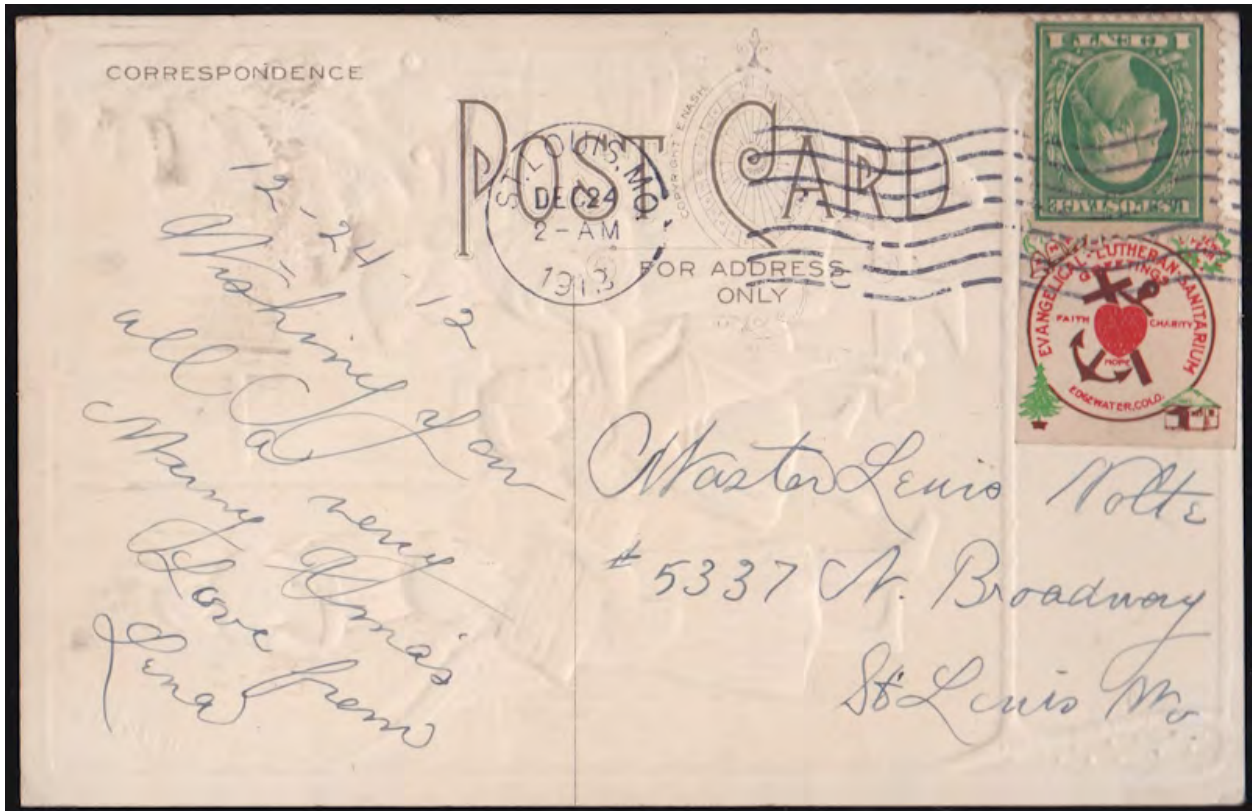 CORRESPONDENCE
POST CARD
COPYRIGHT E. NASH
FOR ADDRESS
ONLY
ST. LOUIS, MO
DEC 24
2-AM
U.S. POSTAGE
1 CENT 1
EVANGELICAL-LUTHERAN SANITARIUM
GREETINGS
FAITH
CHARITY
HOPE
EDGEWATER, COLO.
12-24-12
Wishing you
all a very
Merry Xmas
Love from
Lena
Master Lewis Nolte
# 5337 N. Broadway
St Louis Mo